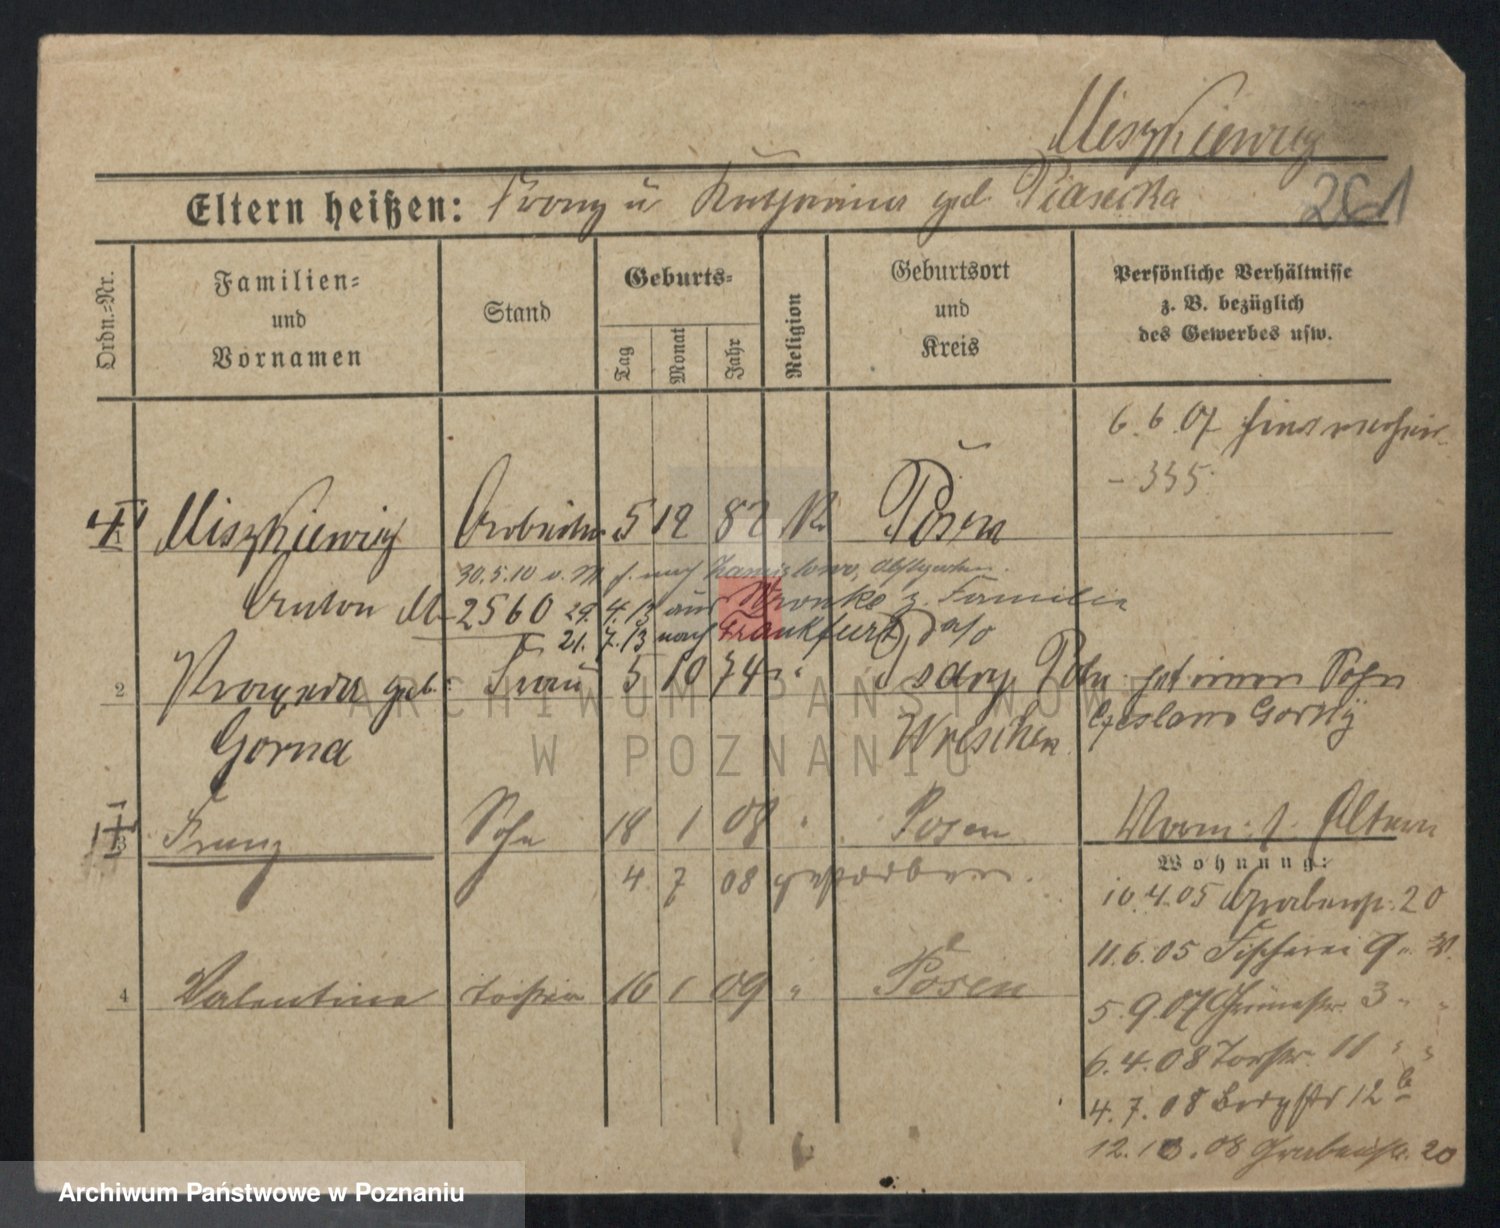 Miszkiewicz
Eltern heißen: Franz u Katharina geb. Piasecka
261
Ordn.=Nr.
Familien=
und
Vornamen
Stand
Geburts=
Tag
Monat
Jahr
Religion
Geburtsort
und
Kreis
Persönliche Verhältnisse
z. B. bezüglich
des Gewerbes usw.
6. 6. 07
- 335
Miszkiewicz Arbeiter 5 12 82 K Posen
30.5.10 v. M f. nach
Anton M- 2560 29. 4. 13 aus Wronke z. Familie
21. 7. 13 nach Frankfurt a/O
2 Praxeda geb. Frau 5 10 74 " hat einen Sohn
Gorna Wreschen Czeslaus Gorny
3 Franz Sohn 18 1 08 " Posen Verm. s. Eltern
4. 7 08 gestorben.
Wohnung:
10.4.05 Grabenstr. 20
11.6.05 Fischerei 9
4 Valentine Tochter 16 1 09 " Posen
5. 9. 07 3 " "
6. 4. 08 Torstr. 11 " "
4. 7. 08 Bergstr 12
12. 10. 08 Grabenstr. 20
ARCHIWUM PAŃSTWOWE
W POZNANIU
Archiwum Państwowe w Poznaniu